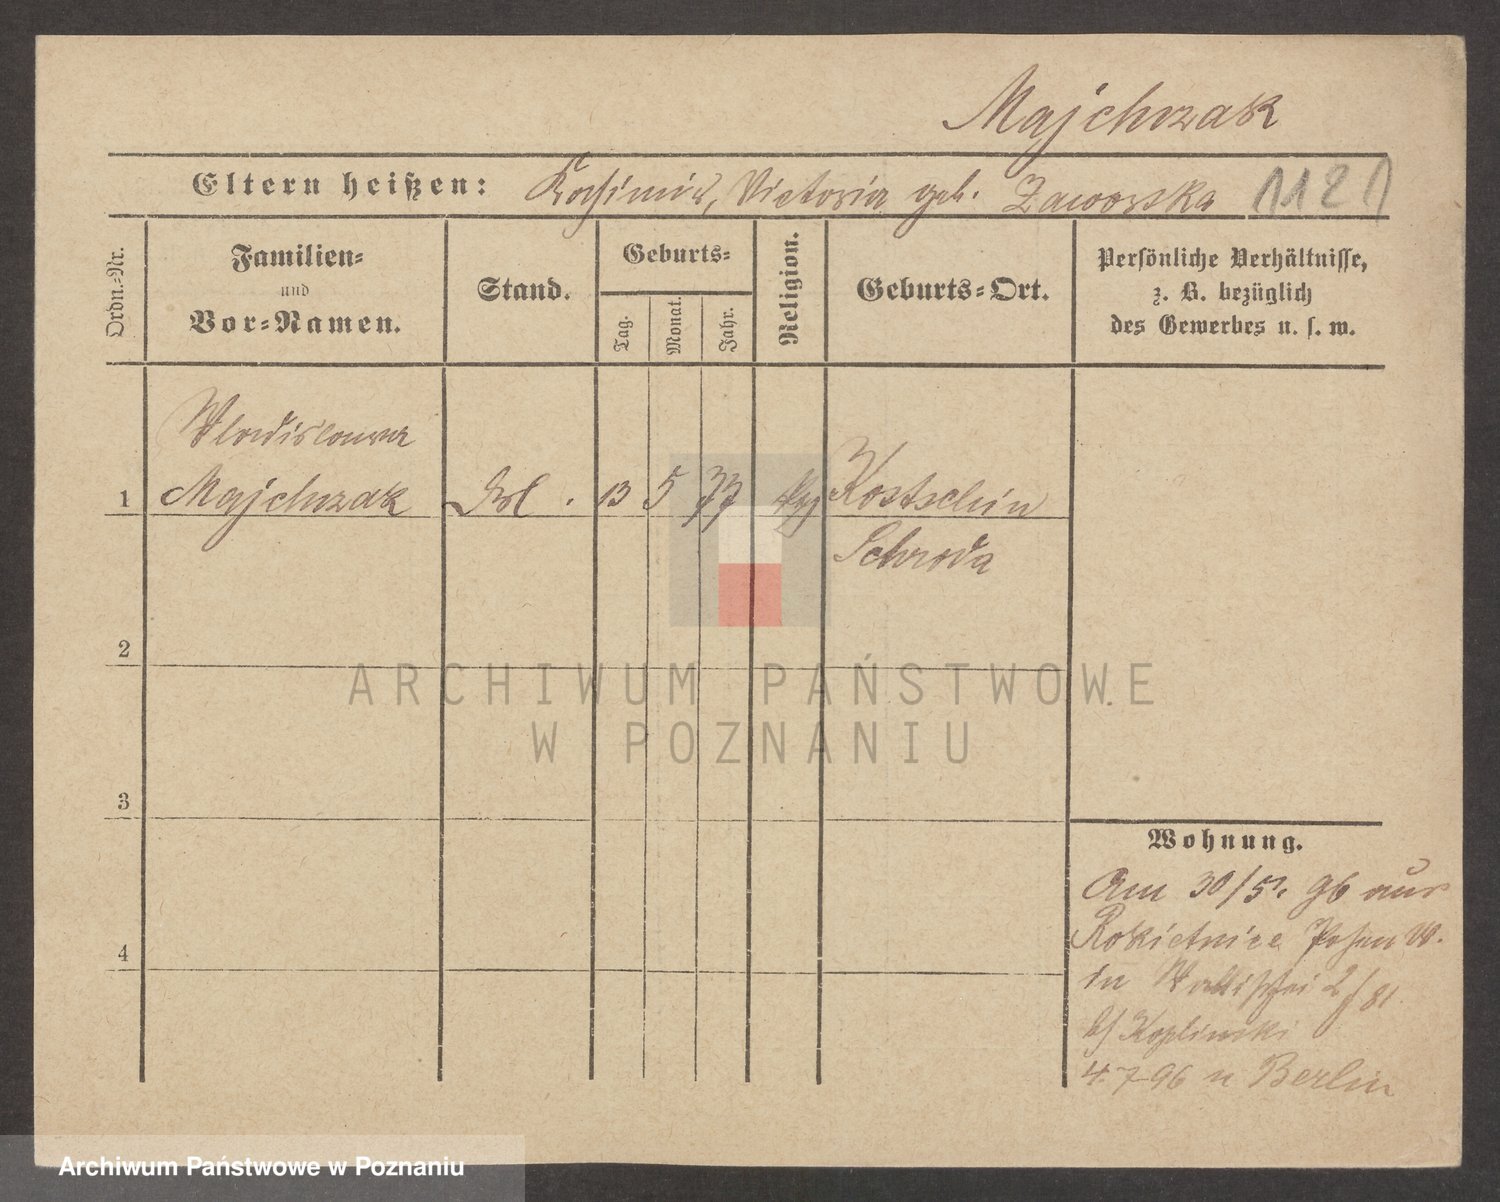 Majchrzak
Eltern heißen: Kasimir, Victoria geb. Zaworska 1121
Ordn.-Nr.
Familien-
und
Vor-Namen.
Stand.
Geburts-
Tag.
Monat.
Jahr.
Religion.
Geburts-Ort.
Persönliche Verhältnisse,
z. B. bezüglich
des Gewerbes u. s. w.
Wladislawa
1 Majchrzak 13 5 77 Kostschin
Schroda
2
3
4
Wohnung.
Am 30/5. 96 aus
Rokietnice Posen W.
in Wallischei 2/81.
b/
4.7.96 n Berlin
ARCHIWUM PAŃSTWOWE
W POZNANIU
Archiwum Państwowe w Poznaniu